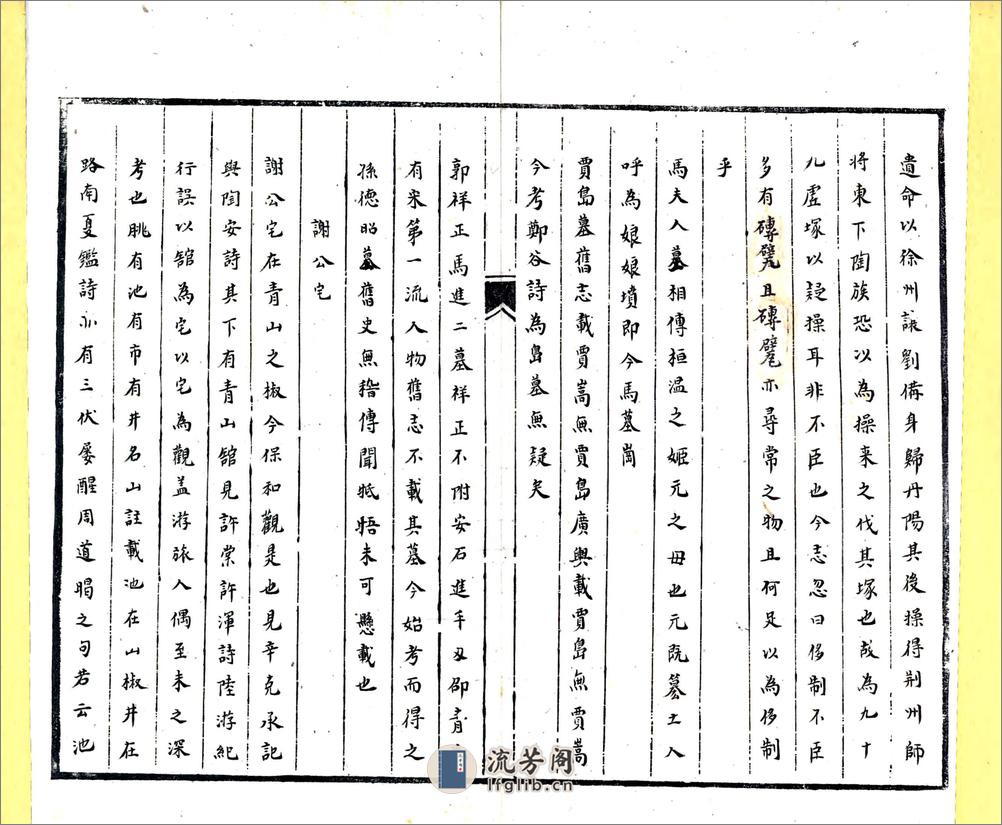 遺命以徐州讓劉備身歸丹陽其後操得荆州師
將東下陶族恐以為操来之伐其塚也故為九十
九虛塚以疑操耳非不臣也今志忽曰侈制不臣
多有磚甓且磚甓亦尋常之物且何足以為侈制
乎
馬夫人墓相傳桓溫之姬元之母也元既墓土人
呼為娘娘墳即今馬墓崗
賈島墓舊志載賈嵩無賈島廣輿載賈島無賈嵩
今考鄭谷詩為島墓無疑矣
郭祥正馬進二墓祥正不附安石進手刃邵青
有宋第一流人物舊志不載其墓今始考而得之
孫德昭墓舊史無稽傳聞牴牾未可懸載也
謝公宅
謝公宅在青山之椒今保和觀是也見辛克承記
與陶安詩其下有青山舘見許棠許渾詩陸游紀
行誤以舘為宅以宅為觀盖游旅人偶至未之深
考也眺有池有市有井名山註載池在山椒井在
路南夏鑑詩亦有三伏屡醒周道暍之句若云池
流芳阁
lfglib.cn